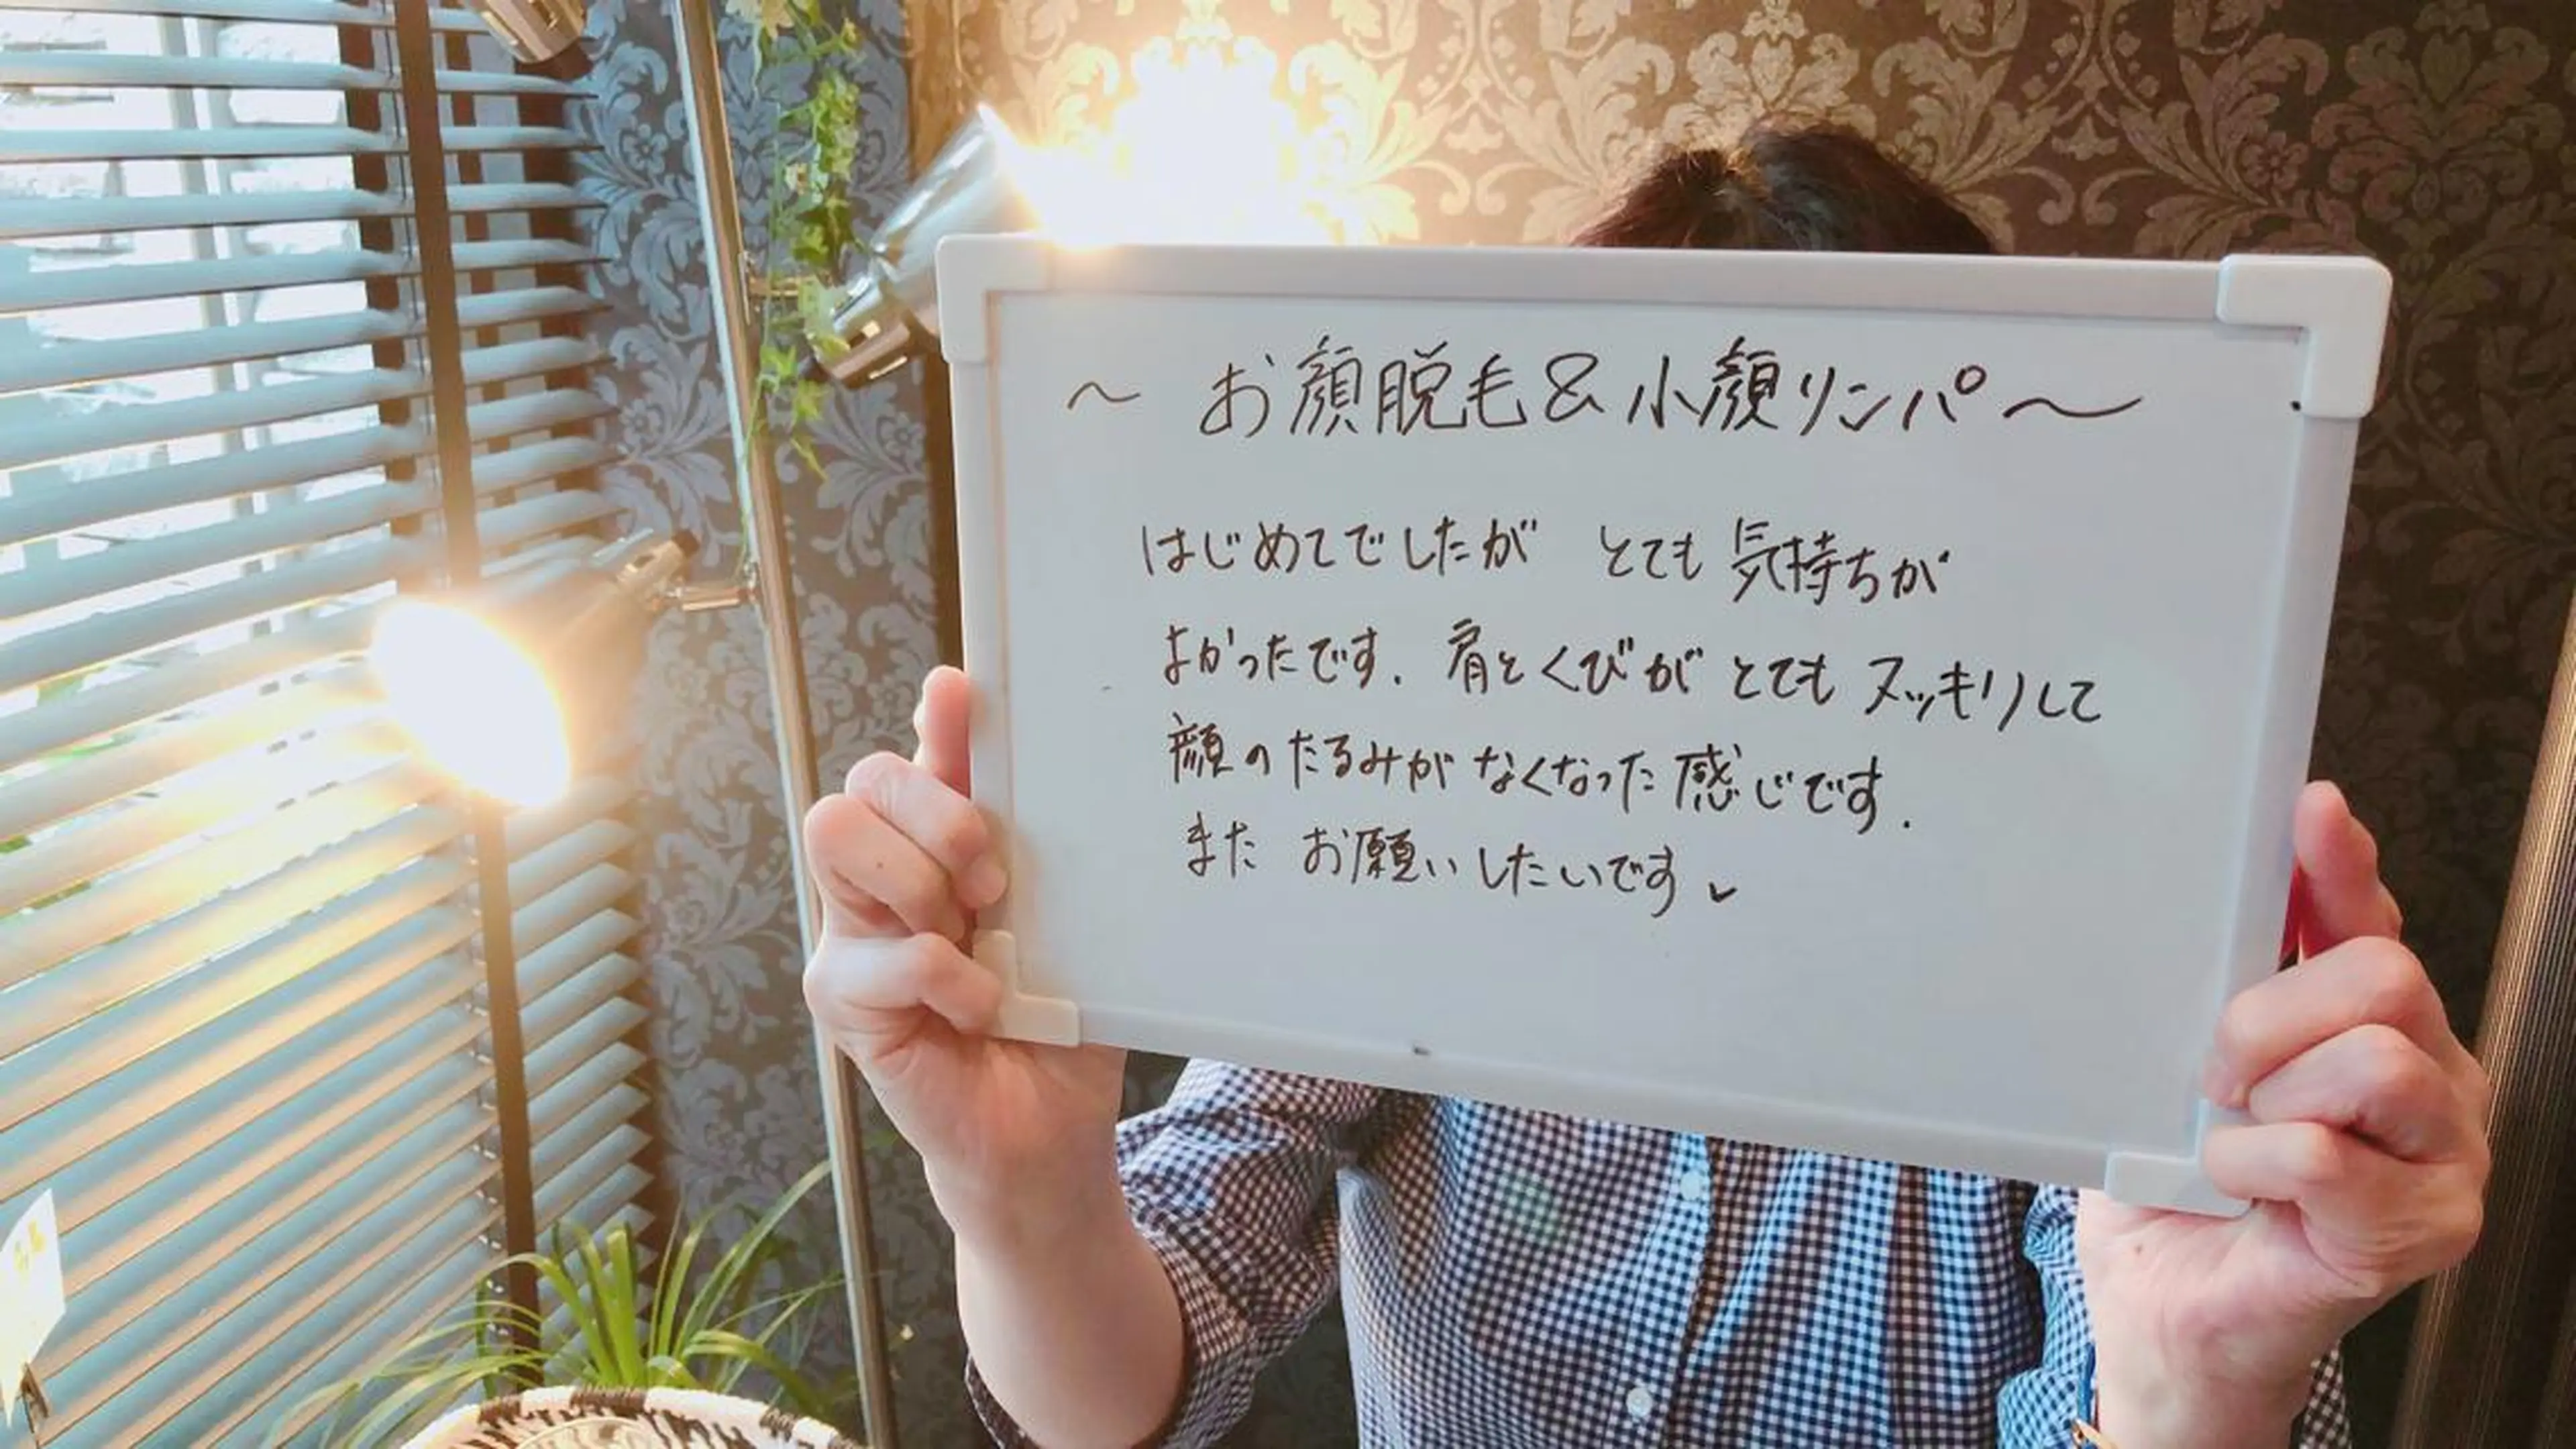 ～ お顔脱毛&小顔リンパ～
はじめてでしたが とても 気持ちが
よかったです. 肩とくびが とても スッキリして
顔のたるみが なくなった 感じです.
また お願い したいです